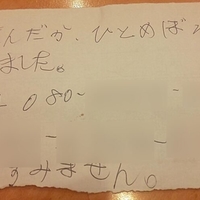 んだか、ひとめぼ
ました。
080-
-
すみません。